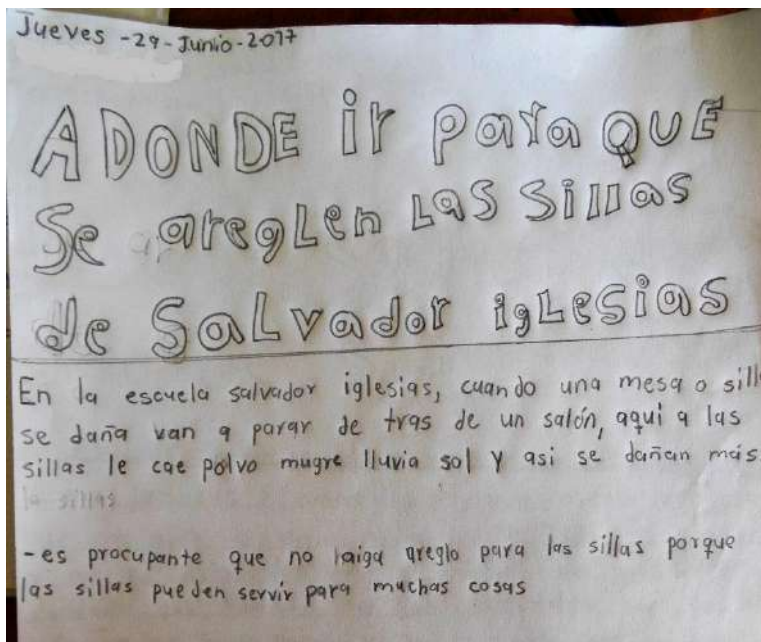 Jueves - 29 - Junio - 2017
A DONDE ir Para QUE
Se aregLen Las Sillas
de SaLvador igLesias
En la escuela salvador iglesias, cuando una mesa o sill
se daña van a parar de tras de un salón, aqui a las
sillas le cae polvo mugre lluvia sol y asi se dañan más
la sillas
-es procupante que no haiga areglo para las sillas porque
las sillas pueden servir para muchas cosas